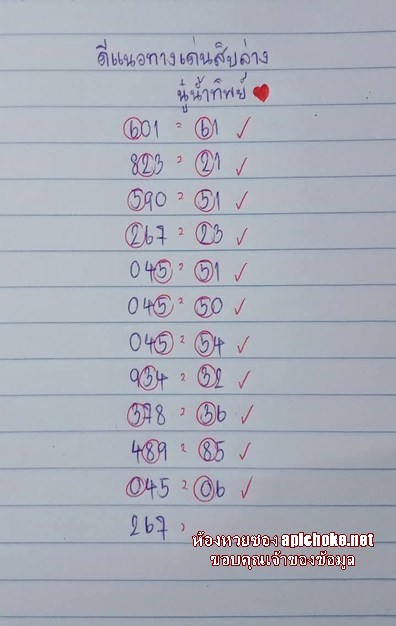 ดีแนวทางเด่นสิบล่าง
นู๋น้ำทิพย์
601 = 61 ✓
823 = 21 ✓
590 = 51 ✓
267 = 23 ✓
045 = 51 ✓
045 = 50 ✓
045 = 54 ✓
934 = 32 ✓
378 = 36 ✓
489 = 85 ✓
045 = 06 ✓
267 =
ห้องหวยซอง apichoke.net
ขอบคุณเจ้าของข้อมูล